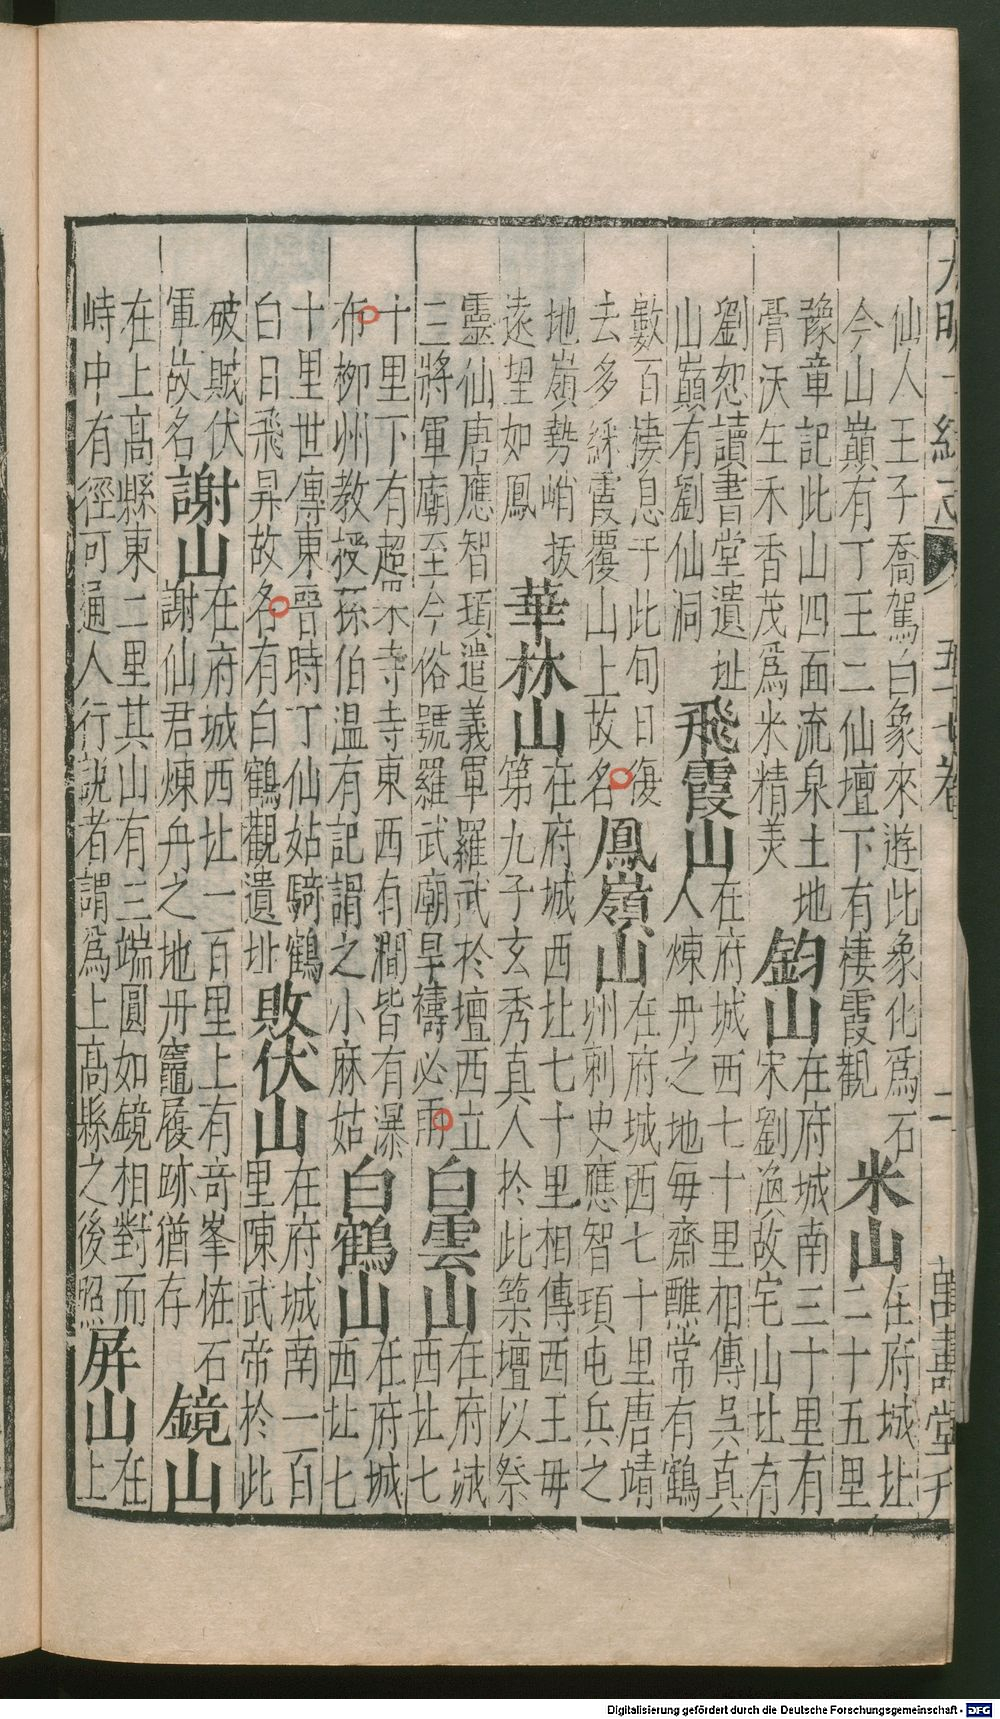 大明一統志 五十七卷 二 萬壽堂刊
仙人王子喬駕白象來遊此象化爲石
今山巔有丁王二仙壇下有棲霞觀
米山
在府城北
二十五里
豫章記此山四面流泉土地
膏沃生禾香茂爲米精美
鈞山
在府城南三十里有
宋劉渙故宅山北有
劉恕讀書堂遺址
山巔有劉仙洞
飛霞山
在府城西七十里相傳吳真
人煉丹之地毎齋醮常有鶴
數百棲息于此旬日復
去多綵霞覆山上故名
鳳嶺山
在府城西七十里唐靖
州刺史應智頊屯兵之
地嶺勢峭拔
遠望如鳳
華林山
在府城西北七十里相傳西王毋
第九子玄秀真人於此築壇以祭
靈仙唐應智頊遣義軍羅武於壇西立
三將軍廟至今俗號羅武廟旱禱必雨
白雲山
在府城
西北七
十里下有超果寺寺東西有澗皆有瀑
布柳州教授孫伯温有記謂之小麻姑
白鶴山
在府城
西北七
十里世傳東晉時丁仙姑騎鶴
白日飛昇故名有白鶴觀遺址
敗伏山
在府城南一百
里陳武帝於此
破賊伏
軍故名
謝山
在府城西北一百里上有竒峯恠石
謝仙君煉丹之地丹竈履跡猶存
鏡山
在上高縣東二里其山有三端圓如鏡相對而
峙中有徑可通人行說者謂爲上高縣之後照
屏山
在
上
Digitalisierung gefördert durch die Deutsche Forschungsgemeinschaft - DFG